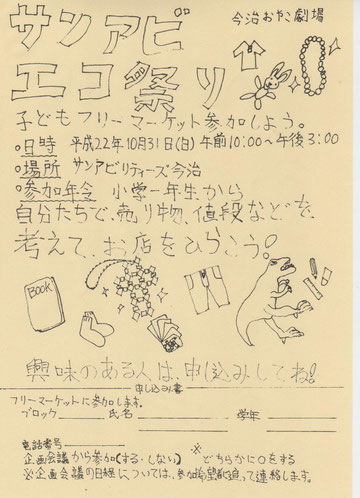 今治おやこ劇場
サンアビ
エコ祭り
子どもフリーマーケット参加しよう。
○日時 平成22年10月31日(日)午前10:00〜午後3:00
○場所 サンアビリティーズ今治
○参加年令 小学一年生から
自分たちで、売り物、値段などを、
考えて、お店をひらこう!
BOOK
興味のある人は、申込みしてね!
申し込み書
フリーマーケットに参加します。
ブロック 氏名 学年
電話番号
企画会議から参加(する・しない) ※どちらかに○をする
※企画会議の日程については、参加希望者に追って連絡します。